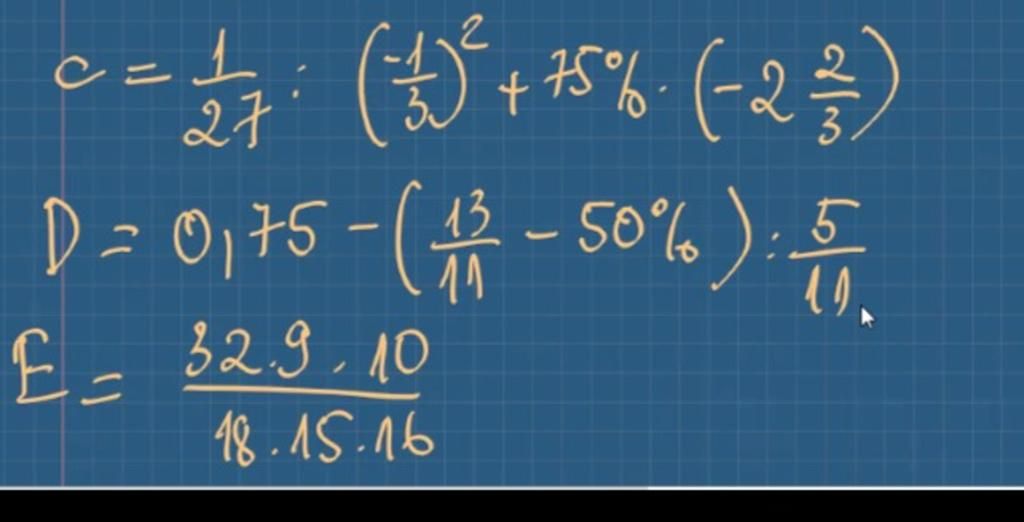 c = 1/27 : (-1/3)² + 75% . (-2 2/3)
D = 0,75 - (13/11 - 50%) : 5/11
E = 32.9.10/18.15.16